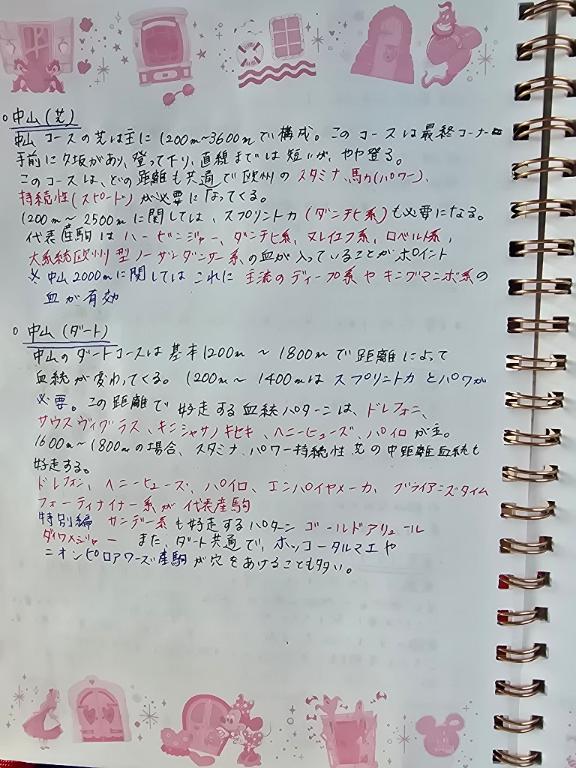 ○ 中山(芝)
中山コースの芝は主に1200m～3600mで構成。このコースは最終コーナー
手前に夕坂があり、登って下り、直線までは短いが、やや登る。
このコースは、どの距離も共通で欧州のスタミナ、馬力(パワー)、
持続性(スピード)が必要になってくる。
1200m～2500mに関しては、スプリント力(ダンチヒ系)も必要になる。
代表産駒はハービンジャー、ダンチヒ系、ヌレイエフ系、ロベルト系、
大系統欧州型ノーザンダンサー系の血が入っていることがポイント
※中山2000mに関してはこれに主流のディープ系やキングマンボ系の
血が有効
○ 中山(ダート)
中山のダートコースは基本1200m～1800mで距離によって
血統が変わってくる。1200m～1400mはスプリント力とパワーが
必要。この距離で好走する血統パターンは、ドレフォン、
サウスヴィグラス、キンシャサノキセキ、ヘニーヒューズ、パイロが主。
1600m～1800mの場合、スタミナ、パワー持続性芝の中距離血統も
好走する。
ドレフォン、ヘニーヒューズ、パイロ、エンパイヤメーカ、ブライアンズタイム
フォーティナイナー系が代表産駒
特別編 サンデー系も好走するパターン ゴールドアリュール
ダイワメジャー また、ダート共通で、ホッコータルマエや
ニオンピロアワーズ産駒が穴をあけることも多い。